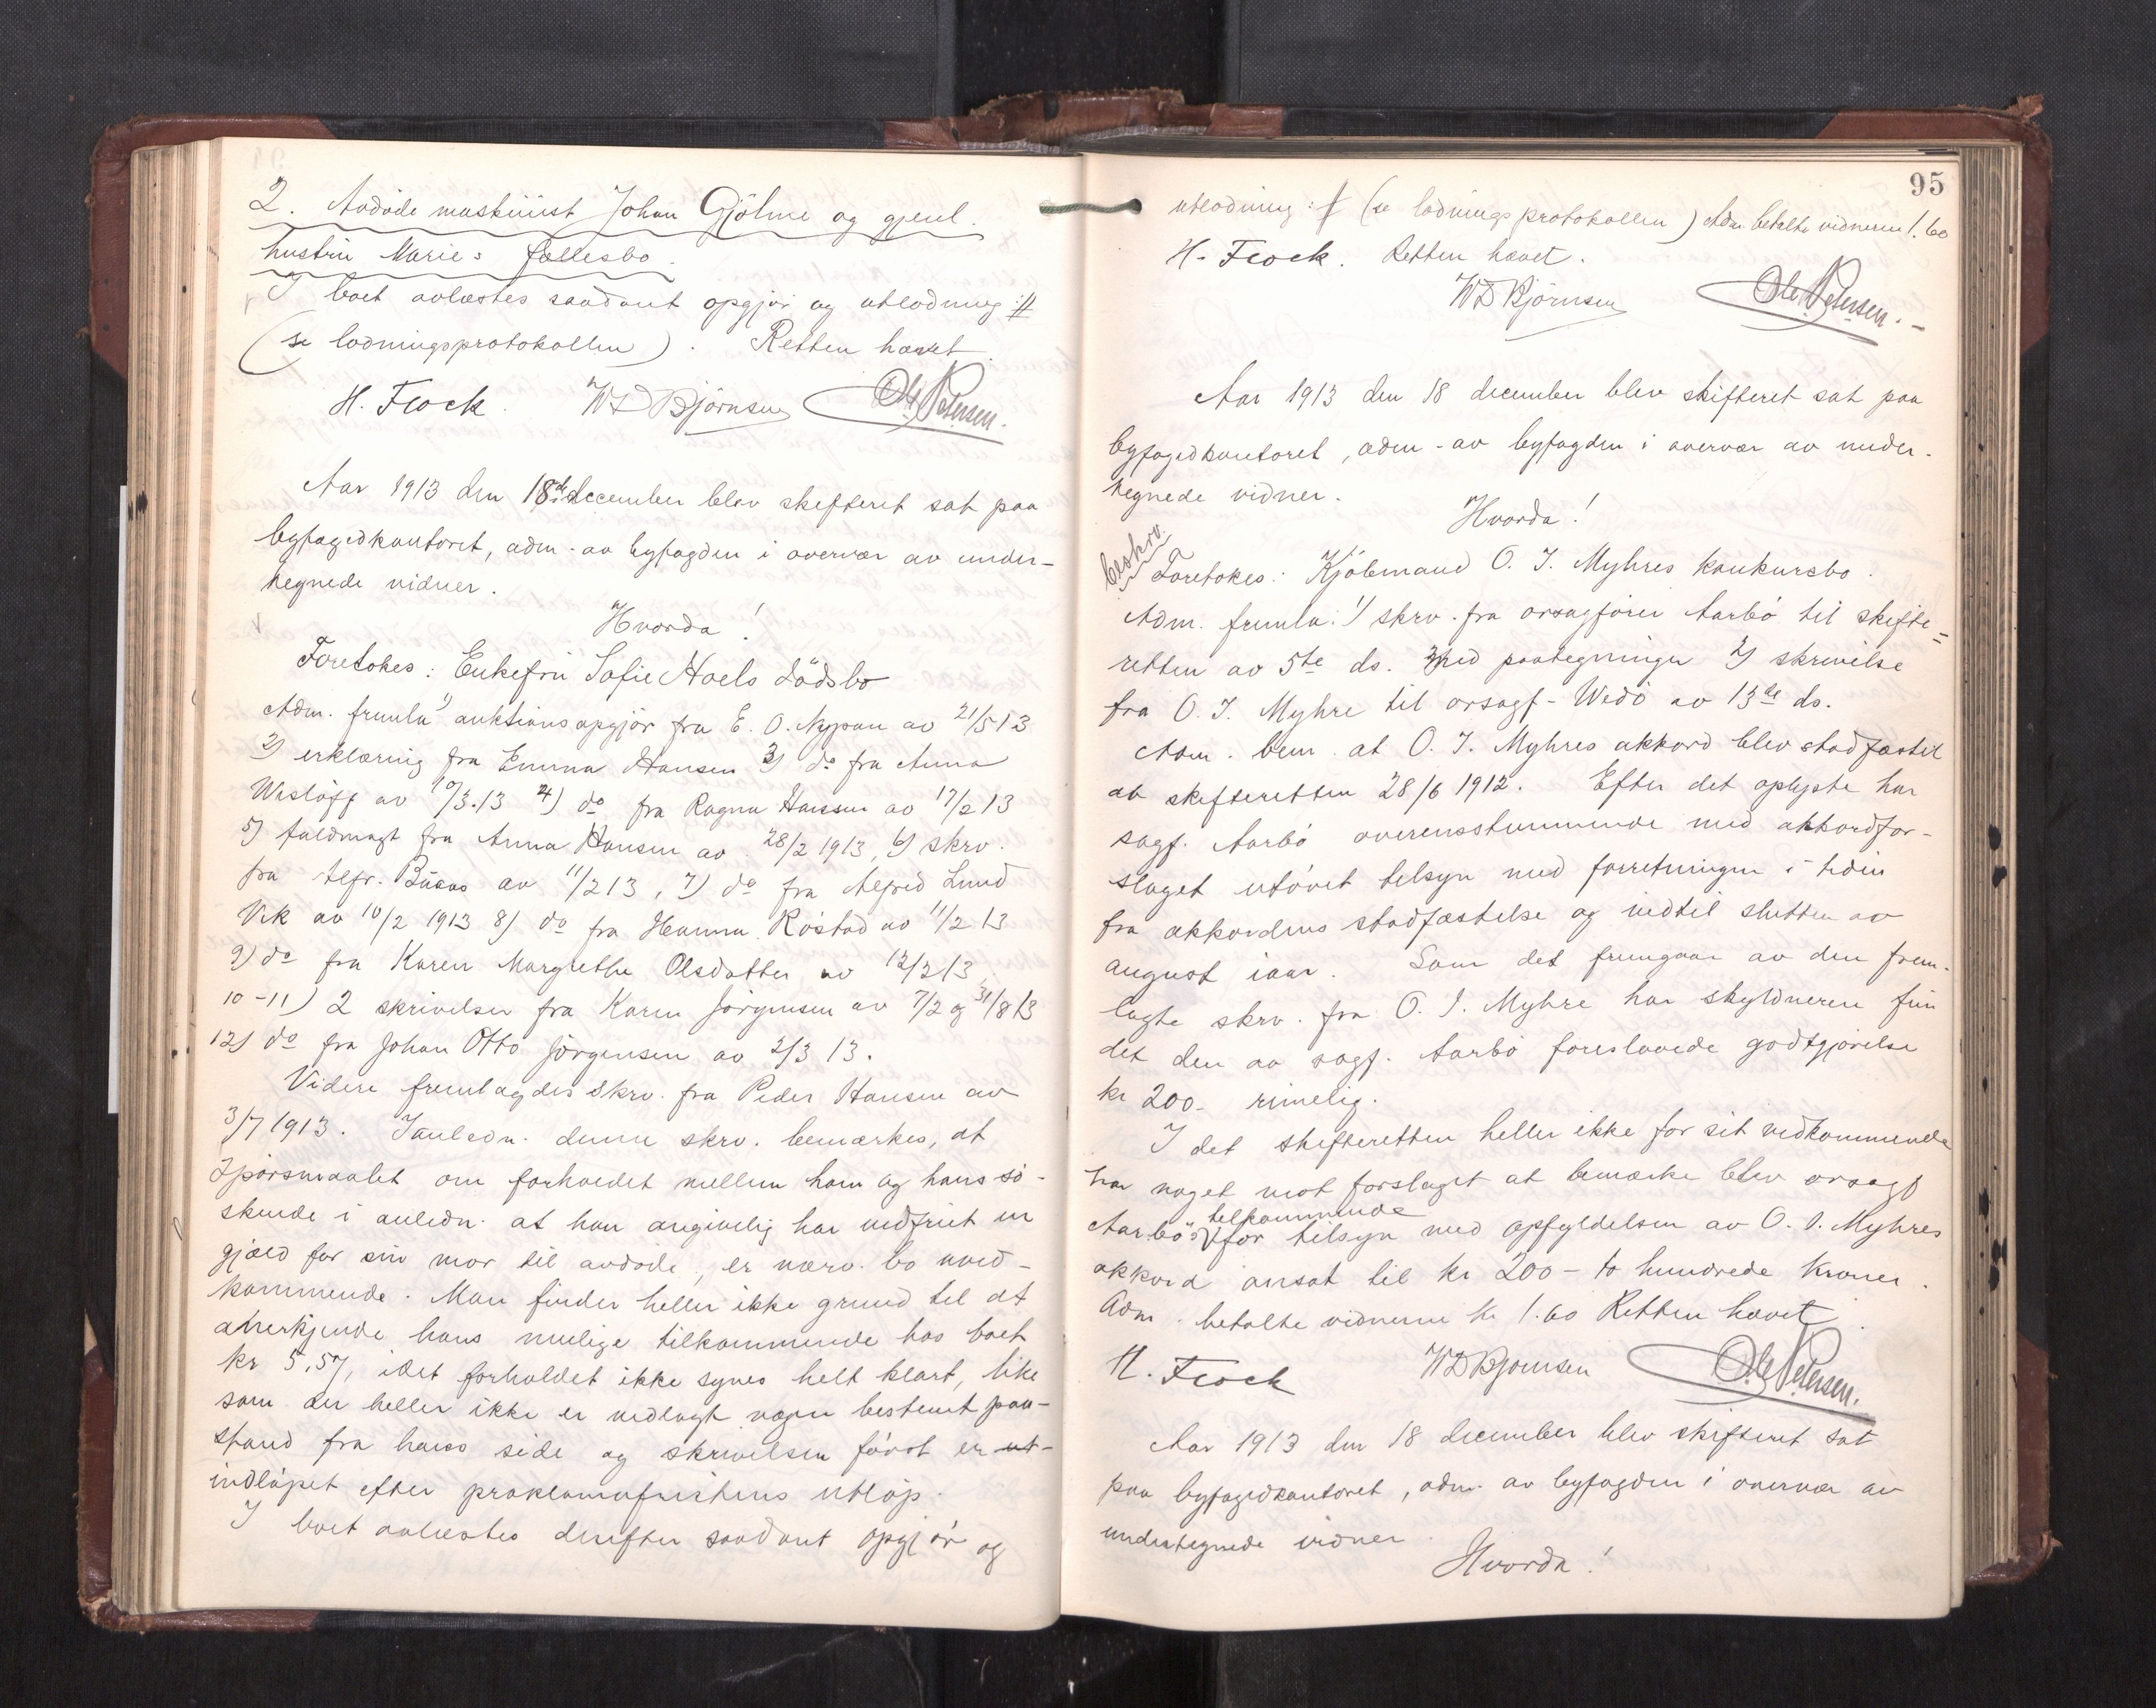 2. Avdöde maskinist Johan Gjölme og gjenl.
hustru Maries fællesbo.
I boet avlæstes saadant opgjör og utlodning :#
(se lodningsprotokollen). Retten hævet.
H. Flock. WD Björnsen Ole Petersen.
Aar 1913 den 18de december blev skifteret sat paa
byfogedkontoret, adm. av byfogden i overvær av under-
tegnede vidner.
Hvorda!
Foretokes: Enkefru Sofie Hoels dödsbo
Adm. fremla 1) auktionsopgjör fra E. O. Nypan av 21/5 13
2) erklæring fra Emma Hansen 3) do fra Anna
Waslöff av 10/3.13 4) do fra Ragna Hansen av 17/2 13
5) fuldmagt fra Anna Hansen av 28/2 1913, 6) skrv.
fra av 11/2 13, 7) do fra Alfred Lund
Vik av 10/2 1913 8) do fra Hanna Röstad av 11/2 13
9) do fra Karen Margrethe Olsdatter av 12/2 13,
10-11) 2 skrivelser fra Karen Jörgensen av 7/2 og 31/8 13
12) do fra Johan Otto Jörgensen av 2/3 13.
Videre fremlagdes skrv. fra Peder Hansen av
3/7 1913. I anledn. denne skrv. bemærkes, at
spörsmaalet om forholdet mellem ham og hans sö-
skende i anledn. at han angivelig har utfriet en
gjæld for sin mor til avdöde, er nærv. bo uved-
kommende. Man finder heller ikke grund til at
anerkjende hans mulige tilkommende hos boet
kr 5,57, idet forholdet ikke synes helt klart, like
som der heller ikke er nedlagt nogen bestemt paa-
stand fra hans side og skrivelsen först er ut-
indlöpet efter proklamafristens utlöp.
I boet avlæstes derefter saadant opgjör og
95
utlodning :# (se lodningsprotokollen) Adm. betalte vidnerne 1.60
H. Flock. Retten hævet.
WD Björnsen Ole Petersen.
Aar 1913 den 18 december blev skifteret sat paa
byfogedkontoret, adm. av byfogden i overvær av under-
tegnede vidner.
Hvorda!
beskrv.
Foretokes: Kjöbmand O. J. Myhres konkursbo.
Adm. fremla: 1) skrv. fra orsagförer Aarbö til skifte=
retten av 5te ds. med paategninger 2) skrivelse
fra O. J. Myhre til orsagf. Wedö av 13de ds.
Adm. bem. at O. J. Myhres akkord blev stadfæstet
av skifteretten 28/6 1912. Efter det oplyste har
sagf. Aarbö overensstemmende med akkordfor-
slaget utövet tilsyn med forretningen i tiden
fra akkordens stadfæstelse og indtil slutten av
august iaar. Som det fremgaar av den frem-
lagte skrv. fra O. J. Myhre har skyldneren fun
det den av sagf. Aarbö foreslaaede godtgjörelse
kr 200.- rimelig.
I det skifteretten heller ikke for sit vedkommende
har noget mot forslaget at bemærke blev orsagf
tilkommende
Aarbö's for tilsyn med opfyldelsen av O. J. Myhres
akkord ansat til kr 200 - to hundrede kroner.
Adm. betalte vidnerne kr 1.60 Retten hævet.
H. Flock WD Bjørnsen Ole Petersen.
Aar 1913 den 18 december blev skifteret sat
paa byfogedkontoret, adm. av byfogden i overvær av
undertegnede vidner.
Hvorda!